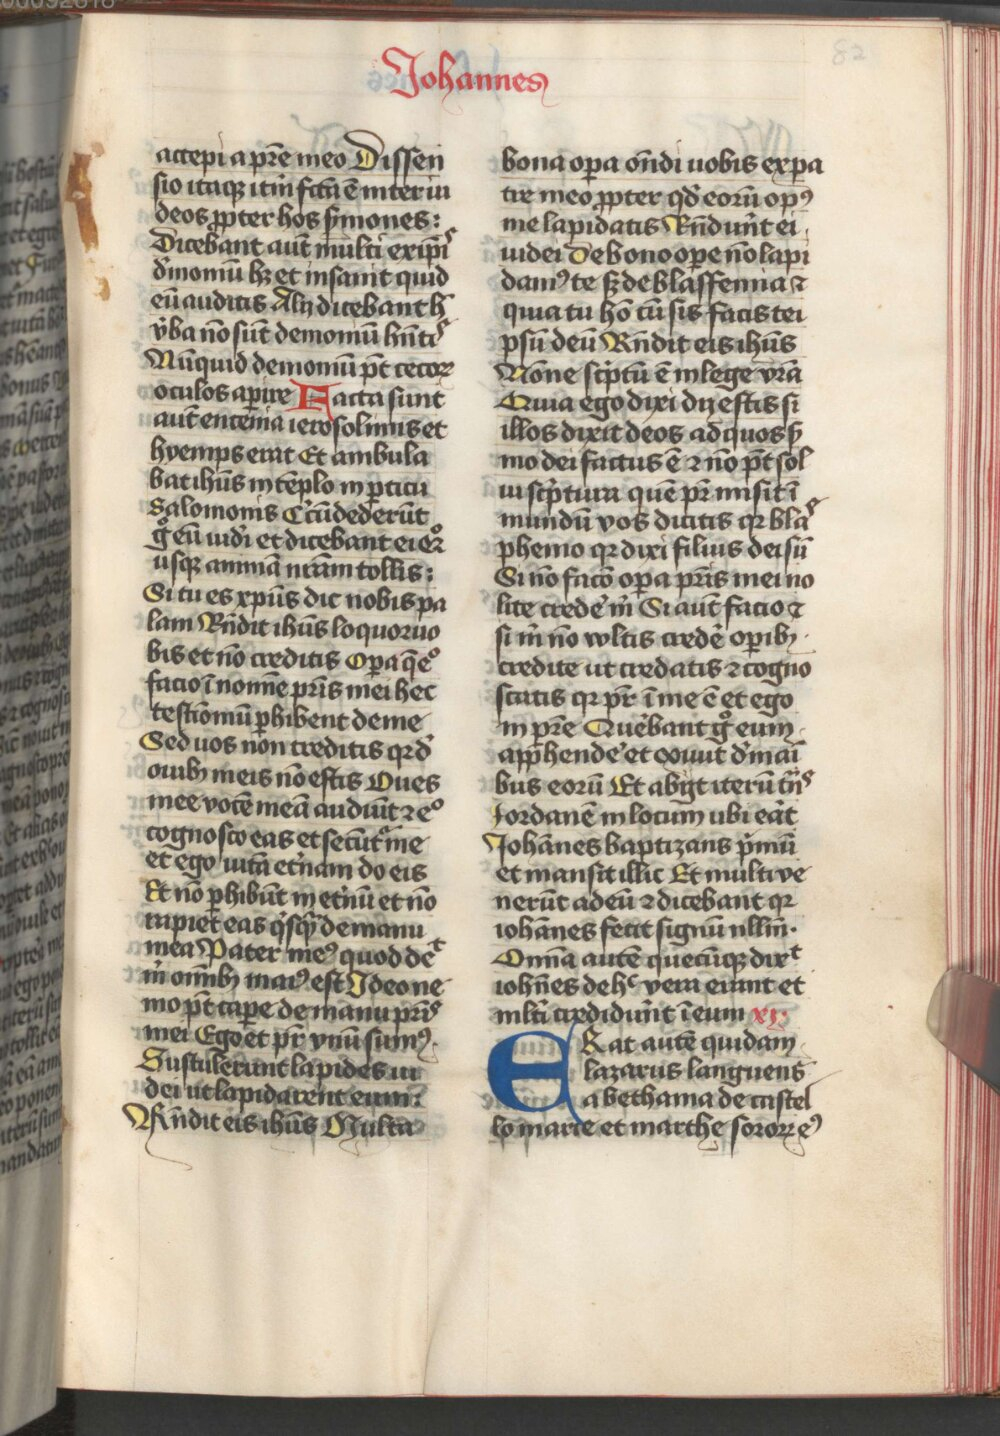 Johannes
82
accepi a p̄re meo Dissen
sio itaqꝫ itm̄ fc̄ta ē inter iu
deos ꝓpter hos ẜmones:
Dicebant aut̄ multi ex ip̄ẜ
d̓moniū hꝫ et insanit quid
eū auditis Alij dicebant h̄
v̓ba nō sūt demoniū hn̄tꝭ
Nūquid demoniū pn̄t cecoꝝ
oculos aꝑire Facta sunt
aut̄ encenia ierosolimis et
hyemps erat Et ambula
bat ihūs in tēplo in ꝑticu
Salomonis Cͬcūdederūt
gͦ eū iudi et dicebant ei eͦꝝ
usqꝫ animā nr̄am tollis:
Si tu es xp̄us dic nobis pa
lam Rn̄dit ihūs loquor uo
bis et nō creditis Oꝑa q̄ eͦ
facio ī nomīe pr̄is mei hec
testiomū ꝑhibent de me
Sed uos non creditis qꝛ d̓
ouibꝫ meis nō estis Oues
mee vocē meā audiūt ⁊ eͦ
cognosco eas et secūt̄ me
et ego vitā et̓nam do eis
Et nō ꝑhibūt in et̓nū et nō
rapiet eas qͥsqͣ de manu
mea Pater meꝰ quod dēt
m̄ om̄ibꝫ maiꝰ est Ideo ne
mo pn̄t rape de manu pr̄is
mei Ego et pr̄ vnū sumꝰ
Sustulerunt lapides iu
dei ut lapidarent eum:
Rn̄dit eis ihūs Multa
bona oꝑa ōn̄di uobis ex pa
tre meo ꝓpter qd̓ eorū opꝰ
me lapidatis Rn̄dunt̄ ei
iudei De bono oꝑe nō lapi
damꝰ te sꝫ de blasfemia ⁊
quia tu hō cū sis facis tei
psū deū Rn̄dit eis ihūs
Nōne scͥptū ē in lege vr̄a
Quia ego dixi dij estis si
illos dixit deos ad quos ẜ
mo dei factus ē ⁊ nō pn̄t sol
ui scͥptura quē pr̄ misit ī
mundū vos dicitis qꝛ blaẜ
phemo qꝛ dixi filius dei sū
Si nō facō oꝑa pr̄is mei no
lite crede̓ m̄ Si aut̄ facio ⁊
si m̄ nō vultis credē oꝑibꝫ
credite ut credatis ⁊ cogno
scatis qꝛ pr̄ ī me ē et ego
in pr̄e Quēbant gͦ eum
app̄hende̓ et exiuit d̓ māi
bus eorū Et abijt iterū tn̄ẜ
Jordanē in locum ubi eāt
Johānes baptizans pͥmū
et mansit illic Et multi ve
nerūt ad eū ⁊ dicebant qꝛ
iohānes fecit signū nllm̄
Omīa autē quecūqꝫ dixͭ
iohn̄es de hͨ vera erant et
ml̄ti credidūt ī eum xj:
Erat autē quidam
lazarus languens
a bethania de castel
lo marie et marthe sororꝝ eꝰ